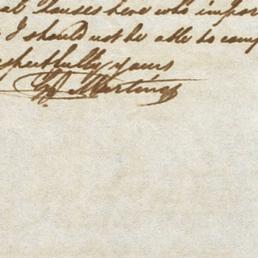 Houses here who impor
I should not be able to comp
spectfully yours
Martinez